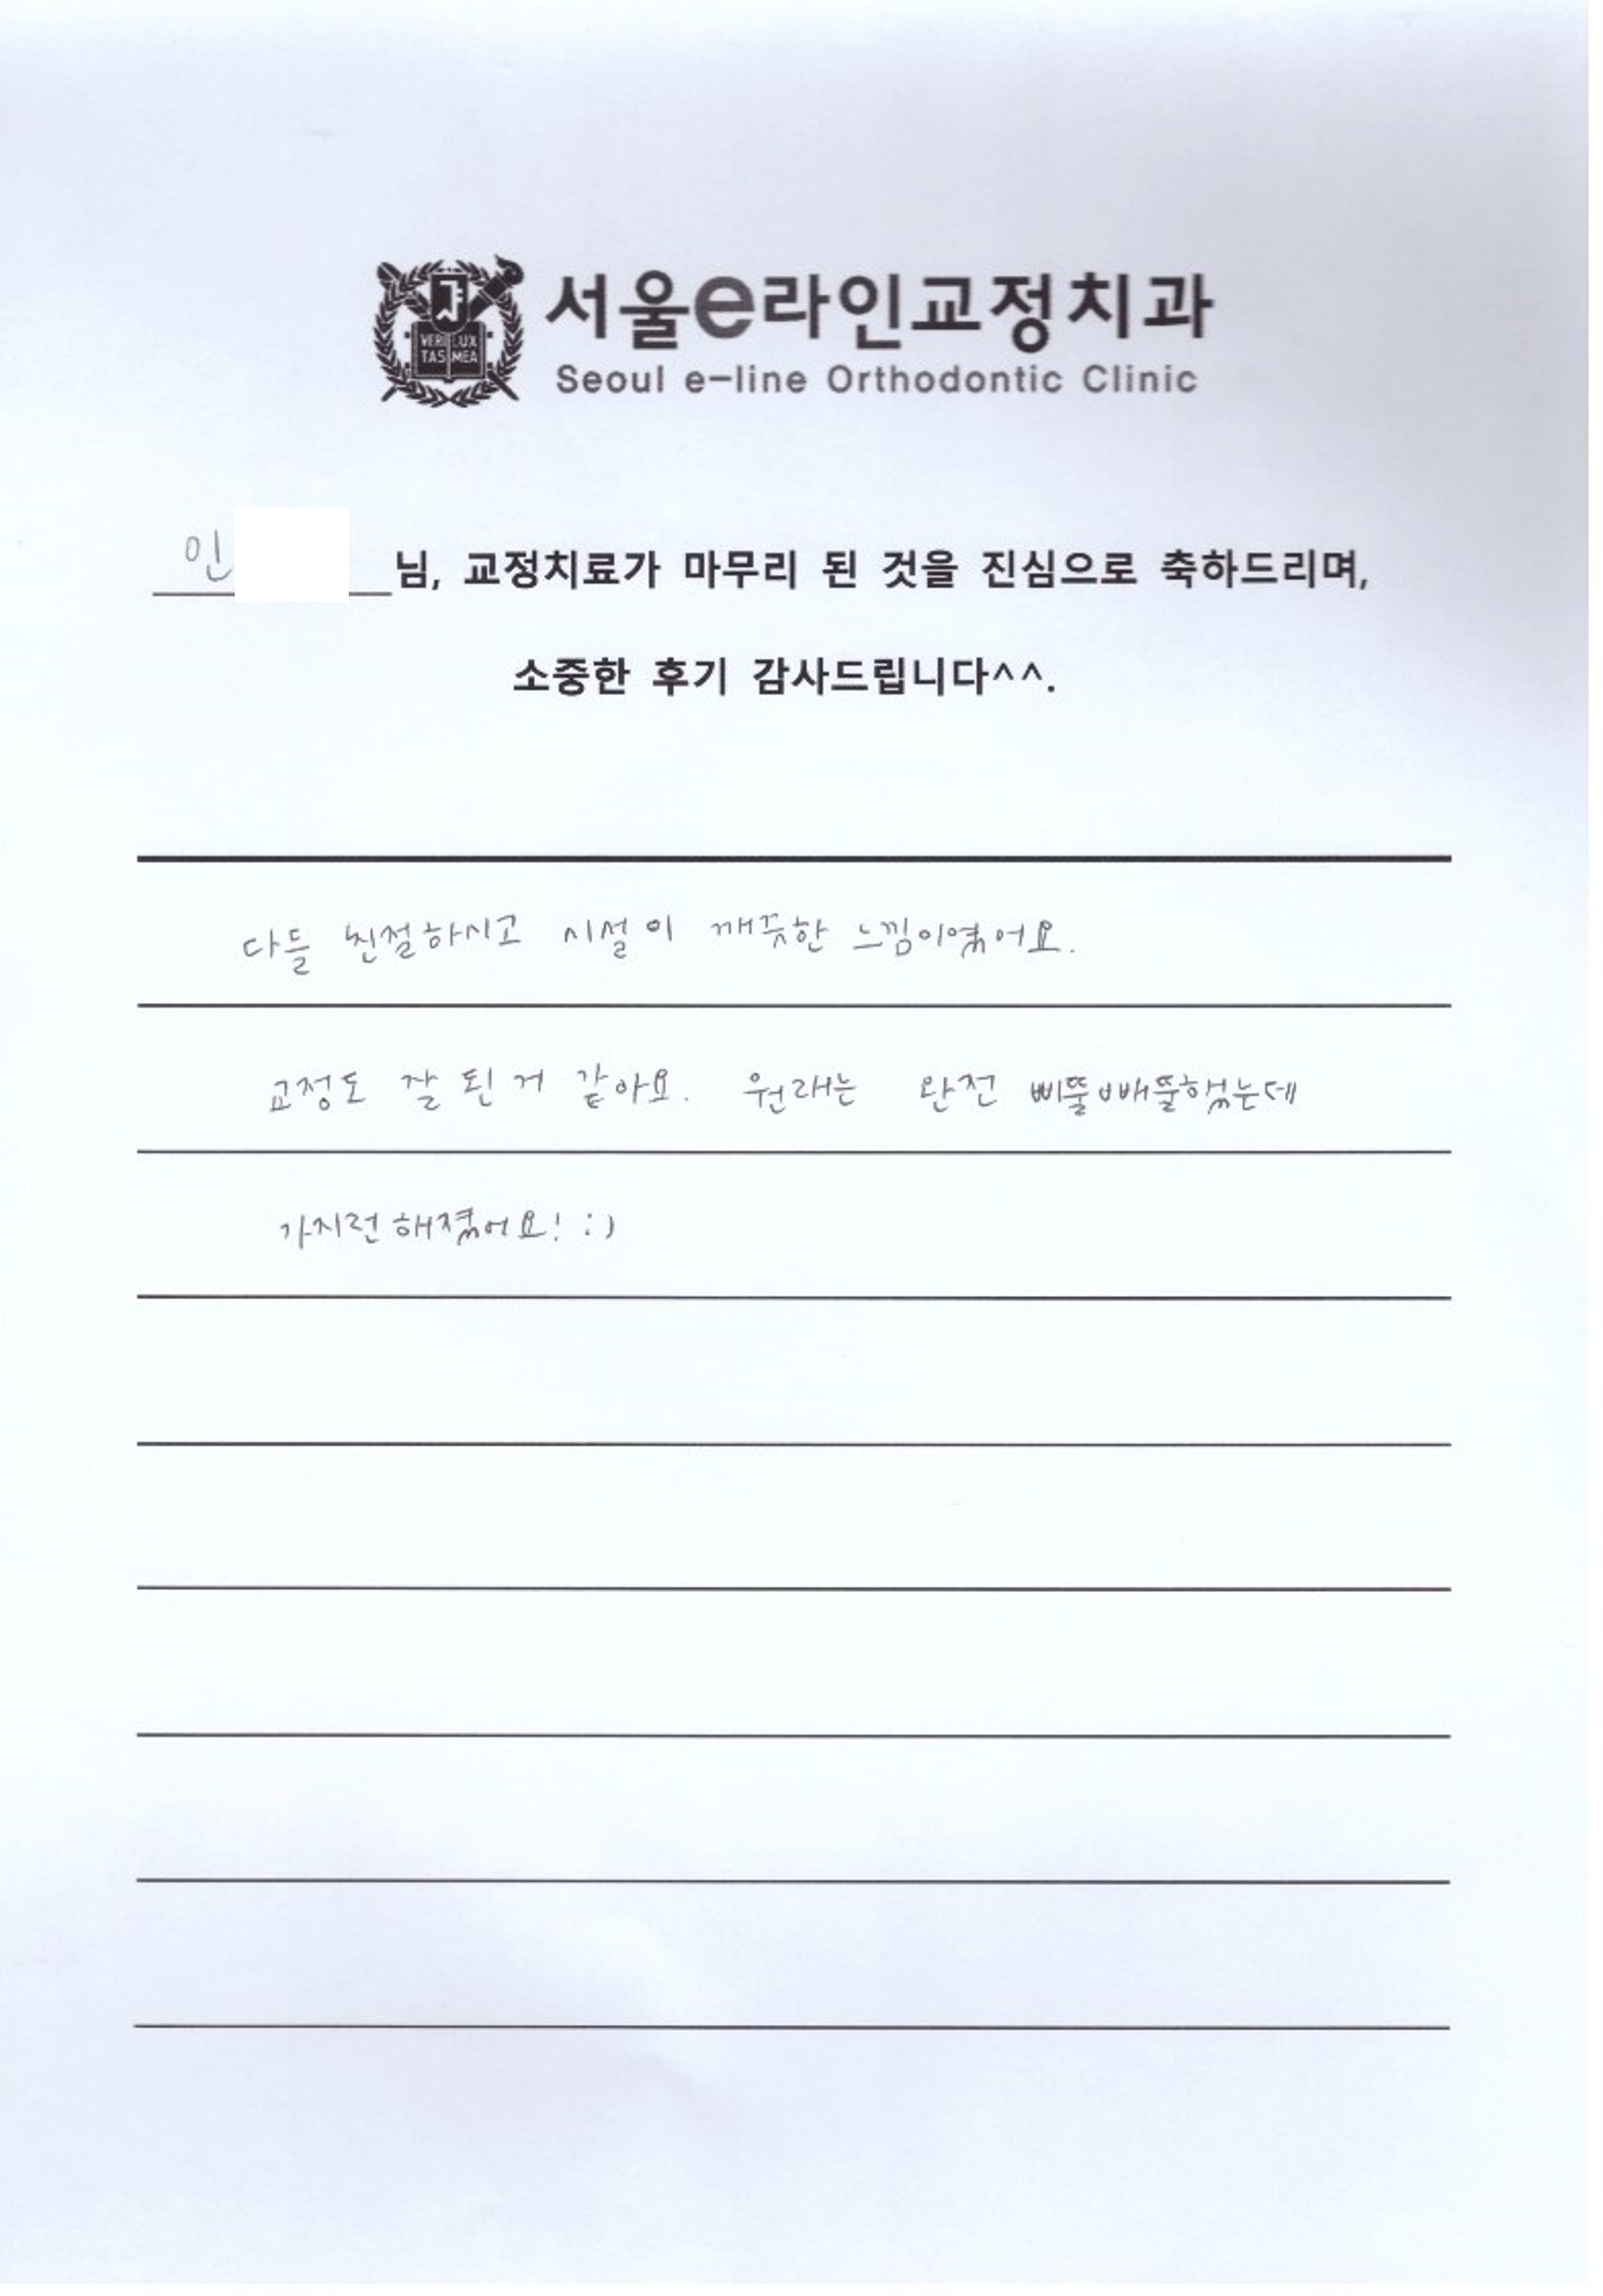 서울e라인교정치과
VERI LUX
TAS MEA
Seoul e-line Orthodontic Clinic
인 님, 교정치료가 마무리 된 것을 진심으로 축하드리며,
소중한 후기 감사드립니다^^.
다들 친절하시고 시설이 깨끗한 느낌이였어요.
교정도 잘 된 거 같아요. 원래는 완전 삐뚤빼뚤했는데
가지런해졌어요! :)